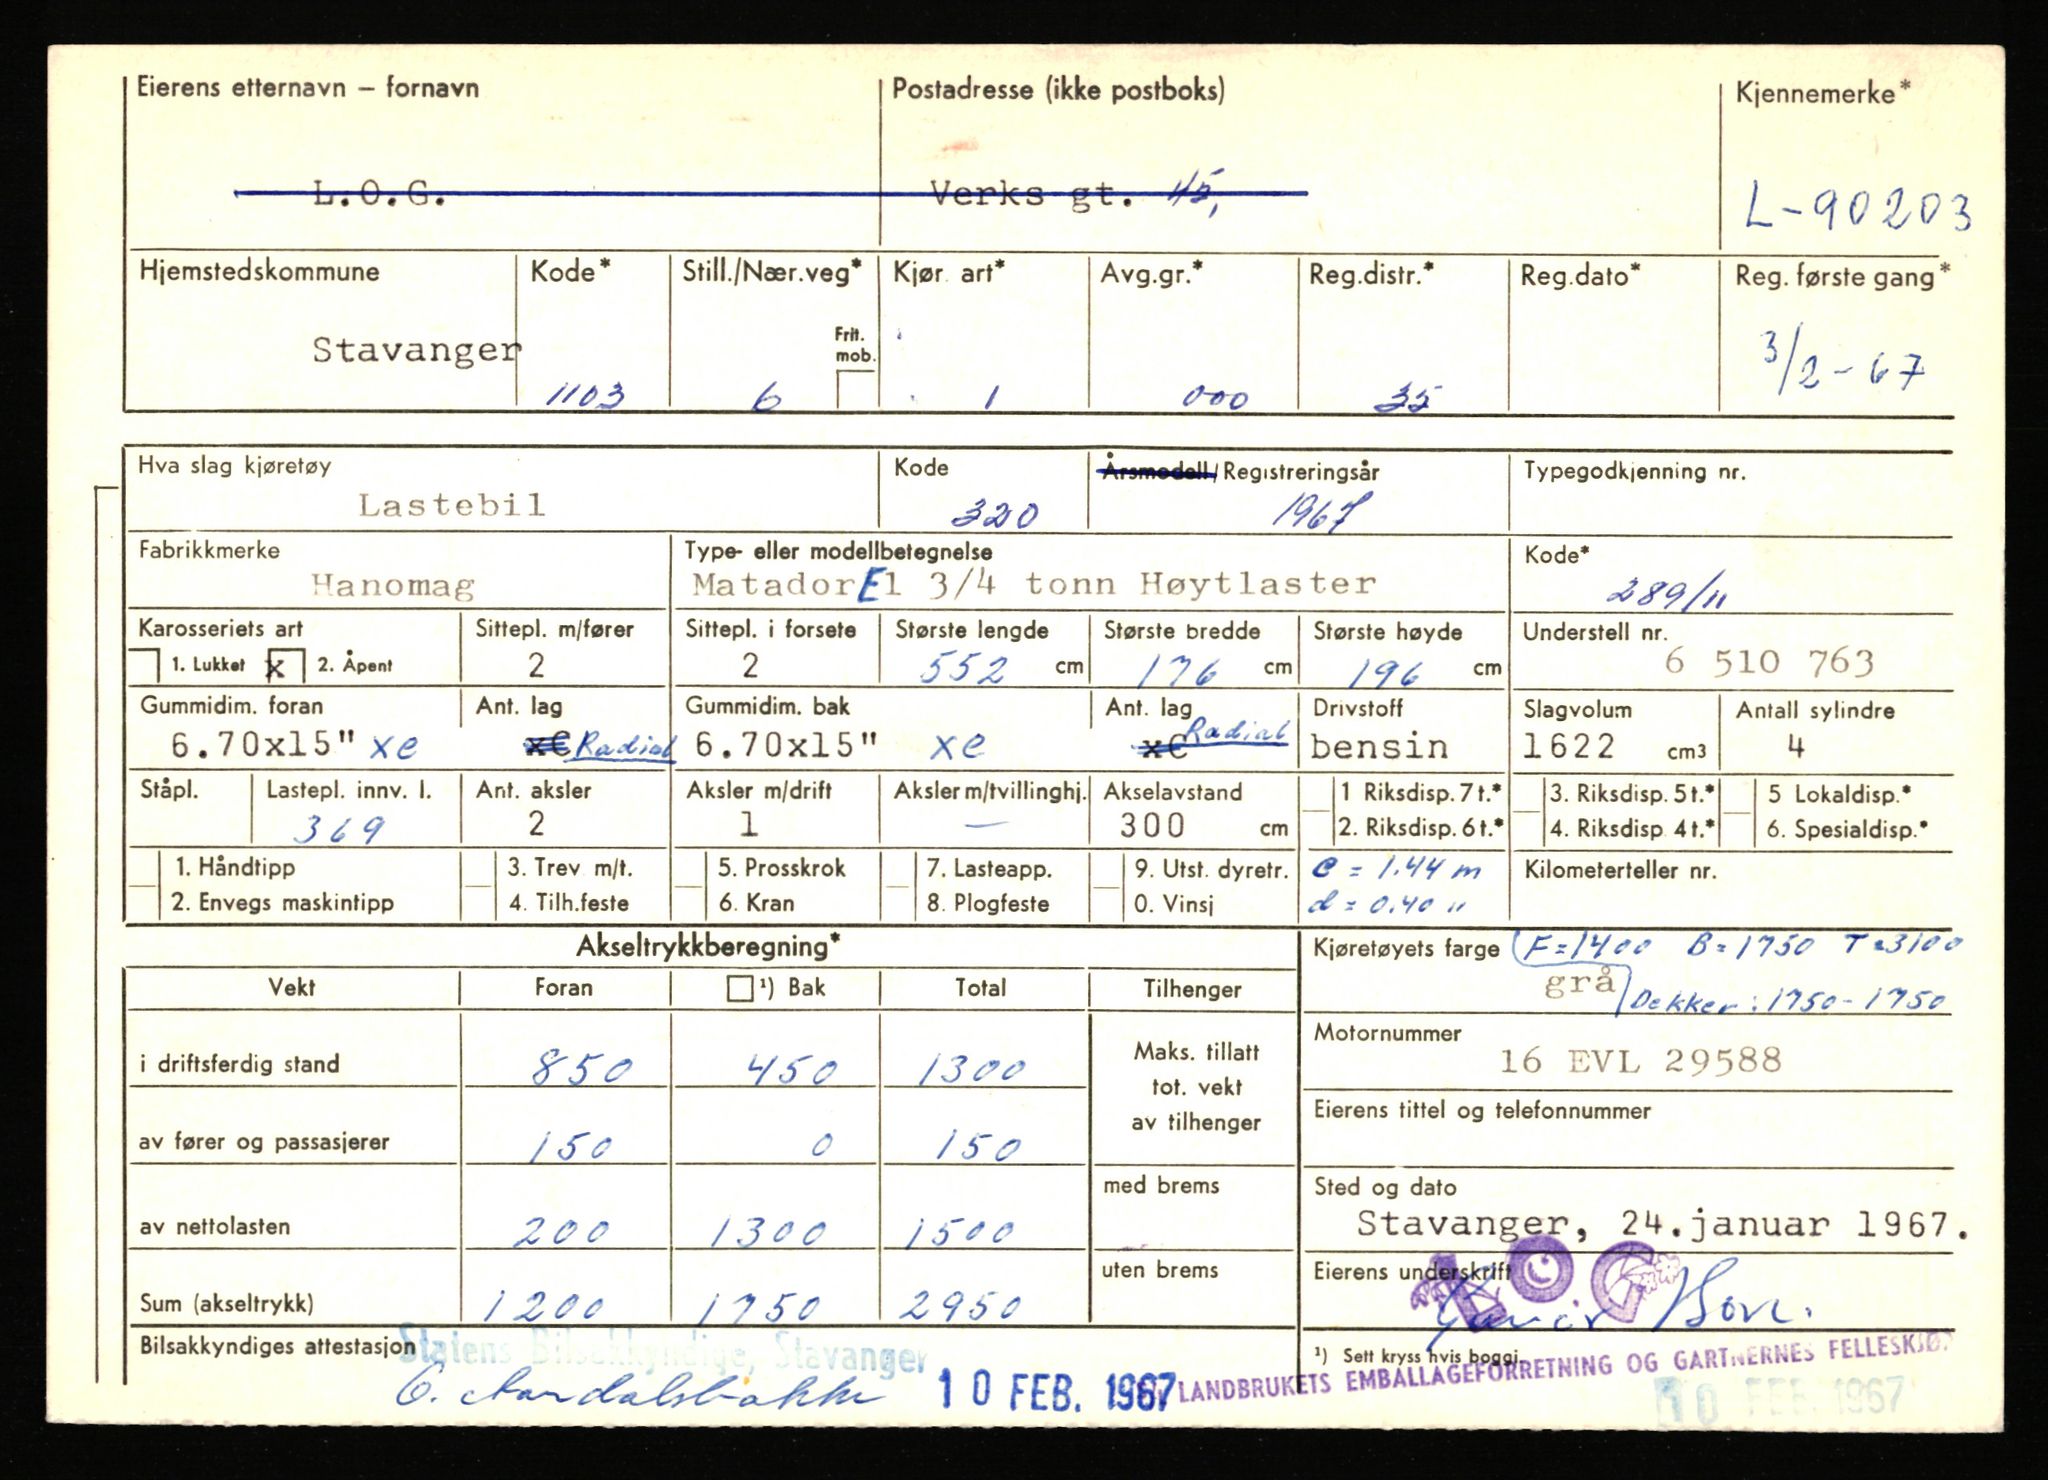 Eierens etternavn – fornavn Postadresse (ikke postboks) Kjennemerke*
L.O.G. Verks gt. 45, L-90203
Hjemstedskommune Kode* Still./Nær.veg* Kjør. art* Avg.gr.* Reg.distr.* Reg.dato* Reg. første gang*
Frit.
mob.
Stavanger 1103 6 1 000 35 3/2-67
Hva slag kjøretøy Kode Årsmodell/Registreringsår Typegodkjenning nr.
Lastebil 320 1967
Fabrikkmerke Type- eller modellbetegnelse Kode*
Hanomag Matador E 1 3/4 tonn Høytlaster 289/11
Karosseriets art Sittepl. m/fører Sittepl. i forsete Største lengde Største bredde Største høyde Understell nr.
1. Lukket x 2. Åpent 2 2 552 cm 176 cm 196 cm 6 510 763
Gummidim. foran Ant. lag Gummidim. bak Ant. lag Drivstoff Slagvolum Antall sylindre
6.70x15" xe x€ Radial 6.70x15" xe x€ Radial bensin 1622 cm3 4
Ståpl. Lastepl. innv. l. Ant. aksler Aksler m/drift Aksler m/tvillinghj. Akselavstand 1 Riksdisp. 7 t.* 3. Riksdisp. 5 t.* 5 Lokaldisp.*
369 2 1 — 300 cm 2. Riksdisp. 6 t.* 4. Riksdisp. 4 t.* 6. Spesialdisp.*
1. Håndtipp 3. Trev m/t. 5. Prosskrok 7. Lasteapp. 9. Utst. dyretr. e = 1.44 m Kilometerteller nr.
2. Envegs maskintipp 4. Tilh.feste 6. Kran 8. Plogfeste 0. Vinsj d = 0.40 "
Akseltrykkberegning* Kjøretøyets farge F=1400 B=1750 T=3100
Vekt Foran ¹) Bak Total Tilhenger grå Dekker: 1750-1750
i driftsferdig stand 850 450 1300 Maks. tillatt
tot. vekt
av tilhenger
Motornummer
16 EVL 29588
av fører og passasjerer 150 0 150 Eierens tittel og telefonnummer
av nettolasten 200 1300 1500 med brems Sted og dato
Stavanger, 24.januar 1967.
uten brems Eierens underskrift
LOG
Sum (akseltrykk) 1200 1750 2950
Bilsakkyndiges attestasjon Statens Bilsakkyndige, Stavanger ¹) Sett kryss hvis boggi.
10 FEB. 1967 LANDBRUKETS EMBALLAGEFORRETNING OG GARTNERNES FELLESKJØP
10 FEB. 1967